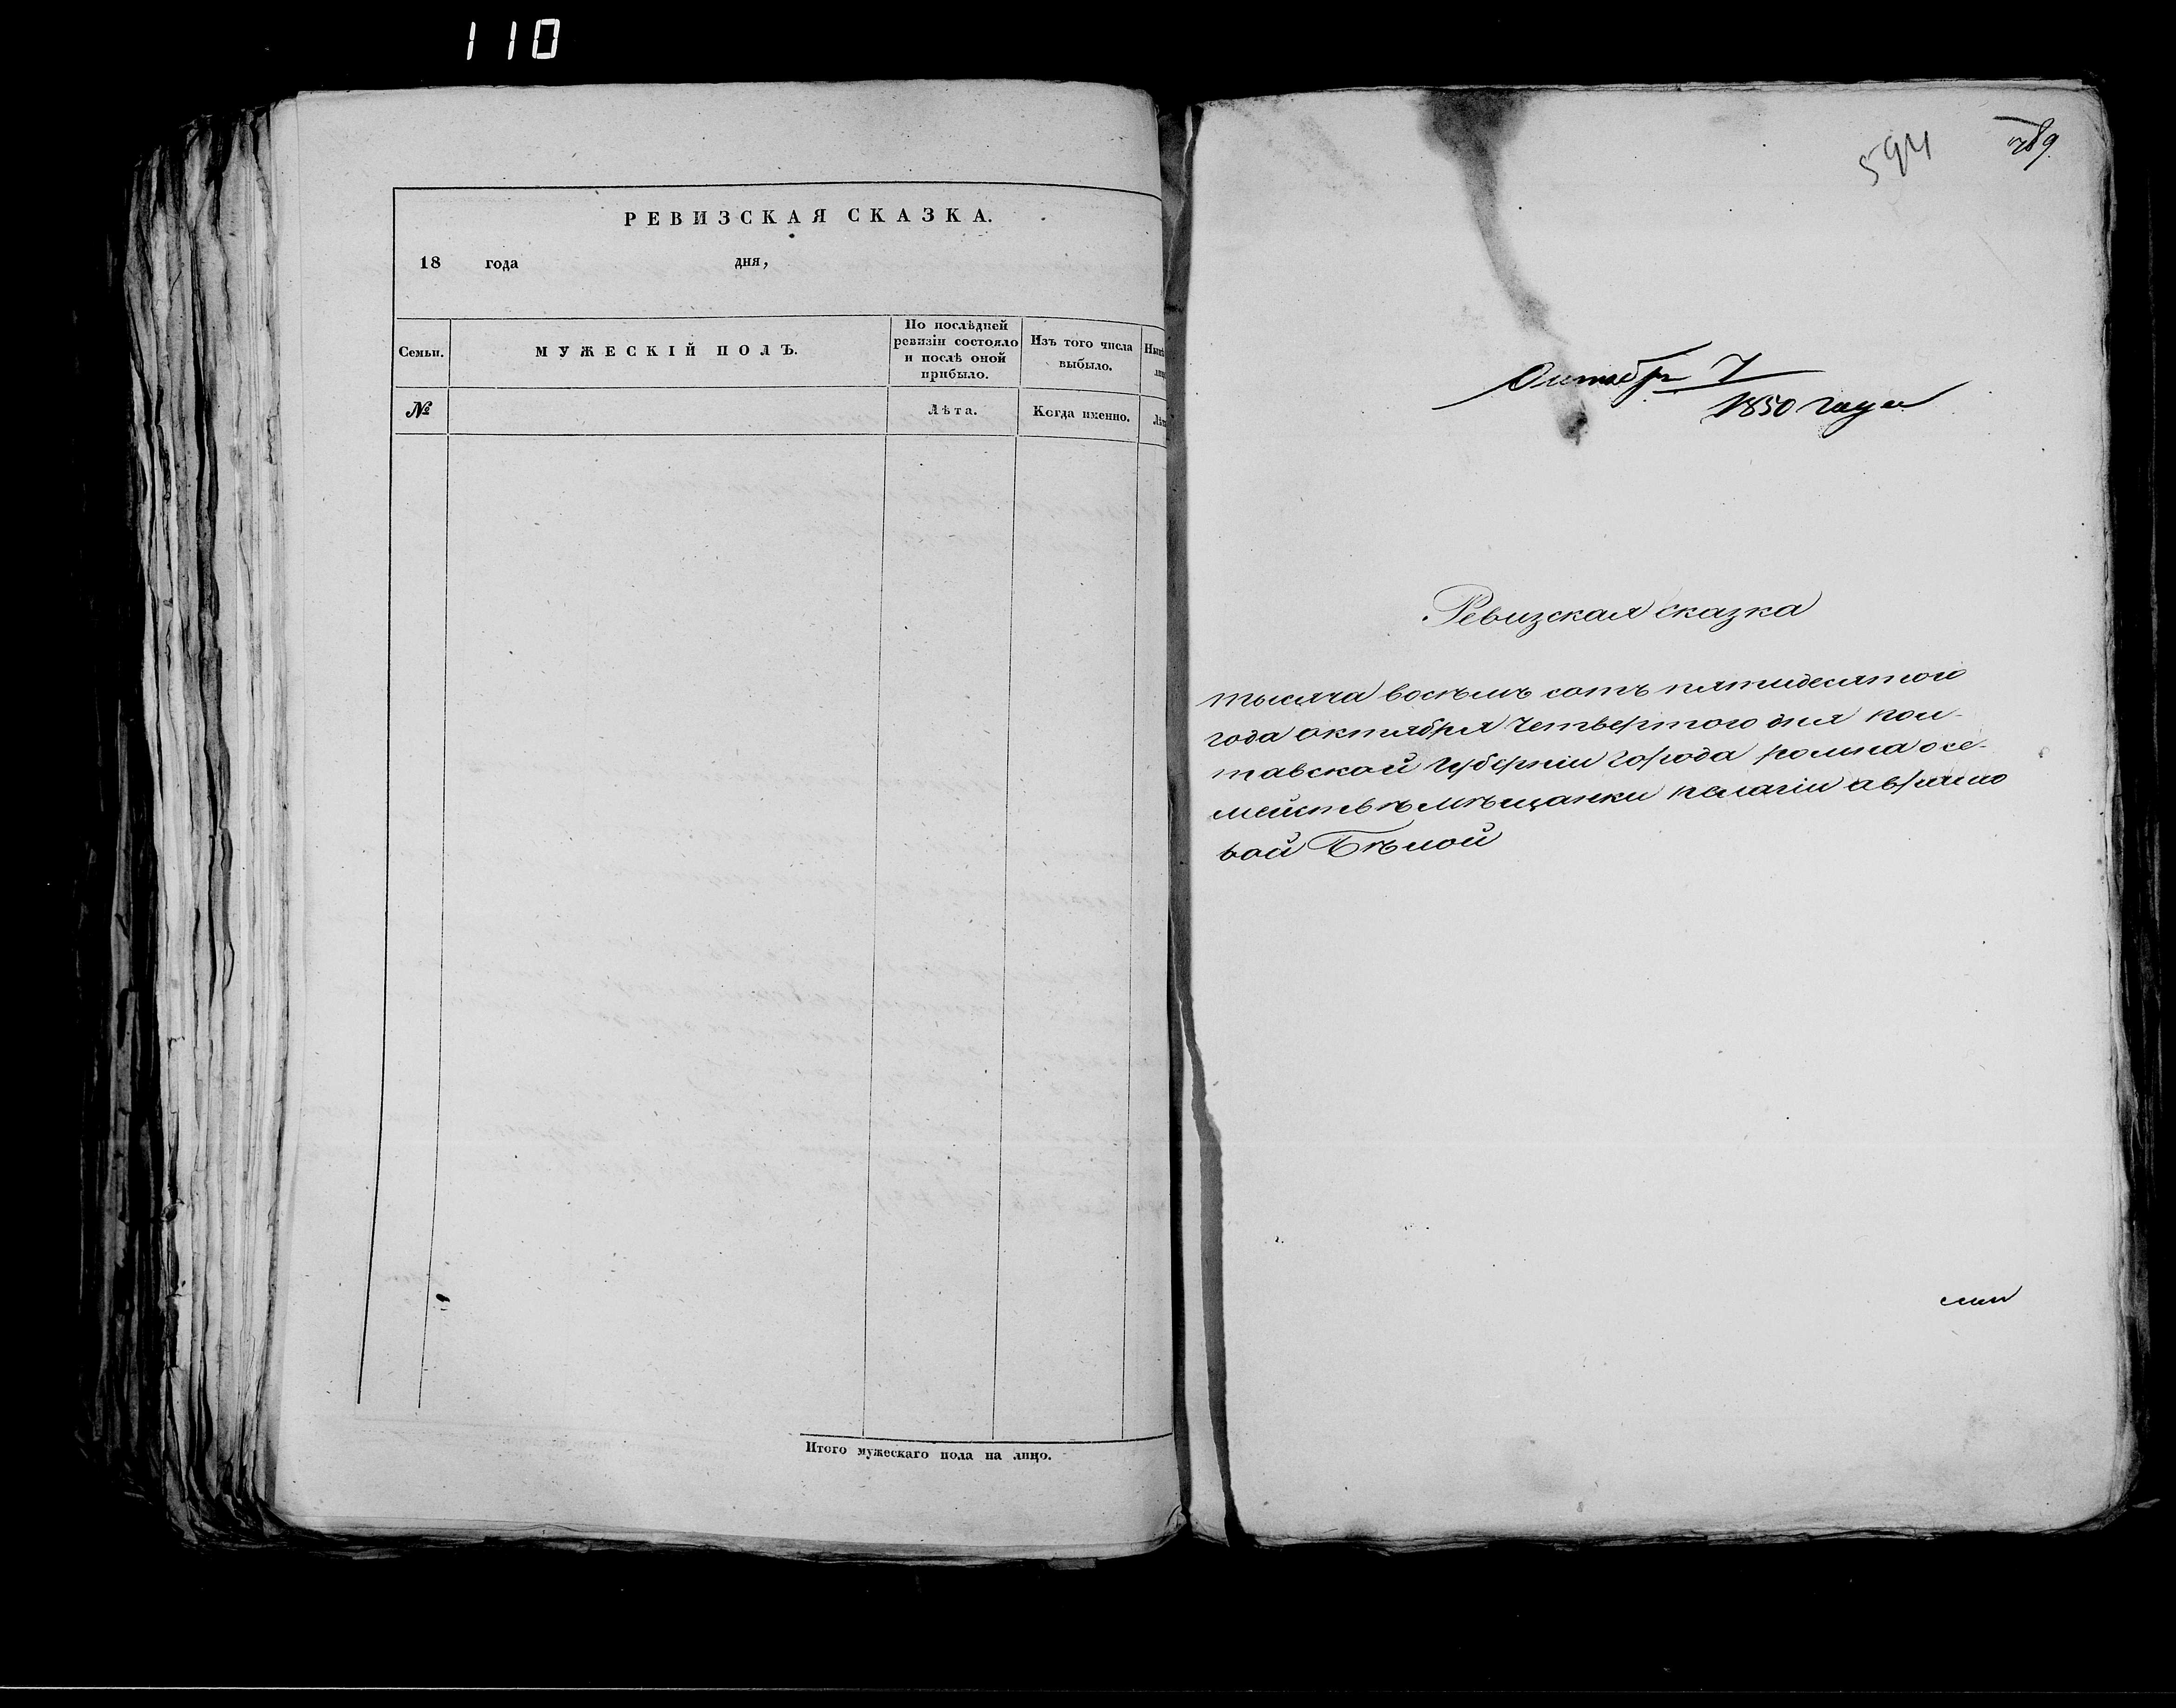 110
РЕВИЗСКАЯ СКАЗКА.
18 года дня,
Семьи.
МУЖЕСКІЙ ПОЛЪ.
По послѣдней ревизіи состояло и послѣ оной прибыло.
Изъ того числа выбыло.
№
Лѣта.
Когда именно.
Итого мужескаго пола на лицо.
594
789
Октября 7
1850 года
Ревизская сказка
тысяча восѣмъ сотъ пятидесятого
года октября четвертого дня пол-
тавской губерніи города ромна о се-
мействѣ мѣщанки пелагіи
вой Бѣлой